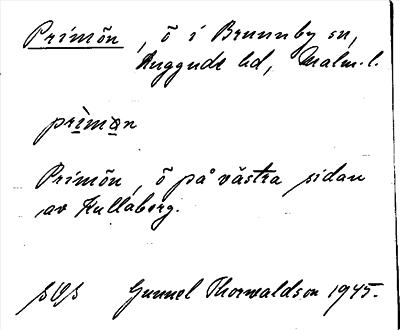 Primön, ö i Brunnby sn,
Luggude hd, Malm. l.
prìmạn
Primön, ö på västra sidan
av Kullaberg.
Gunnel Thorwaldson 1945.